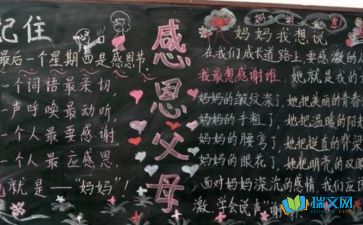 记住
最后一个星期四是感恩节
一个词语最亲切
一声呼唤最动听
一个人最要感谢
一个人最应感恩
就是——“妈妈”！
感恩父母
妈妈我想说
在我们成长道路上要感激的人
我最想感谢谁 她就是我的
妈妈的皱纹深了，她把美丽的青春
妈妈的手粗了，她把温暖的阳
妈妈的腰弯了，她把挺直的脊梁
妈妈的眼花了，她把明亮的双
面对妈妈深沉的感情，我们应
激，学会说声“谢
瑞文网